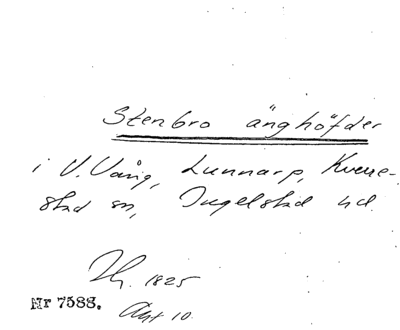 Stenbro änghöfder
i V. Vång, Lunnarp, Kverre-
stad sn, Ingelstad hd.
1825
Nr 7588. Akt 10.